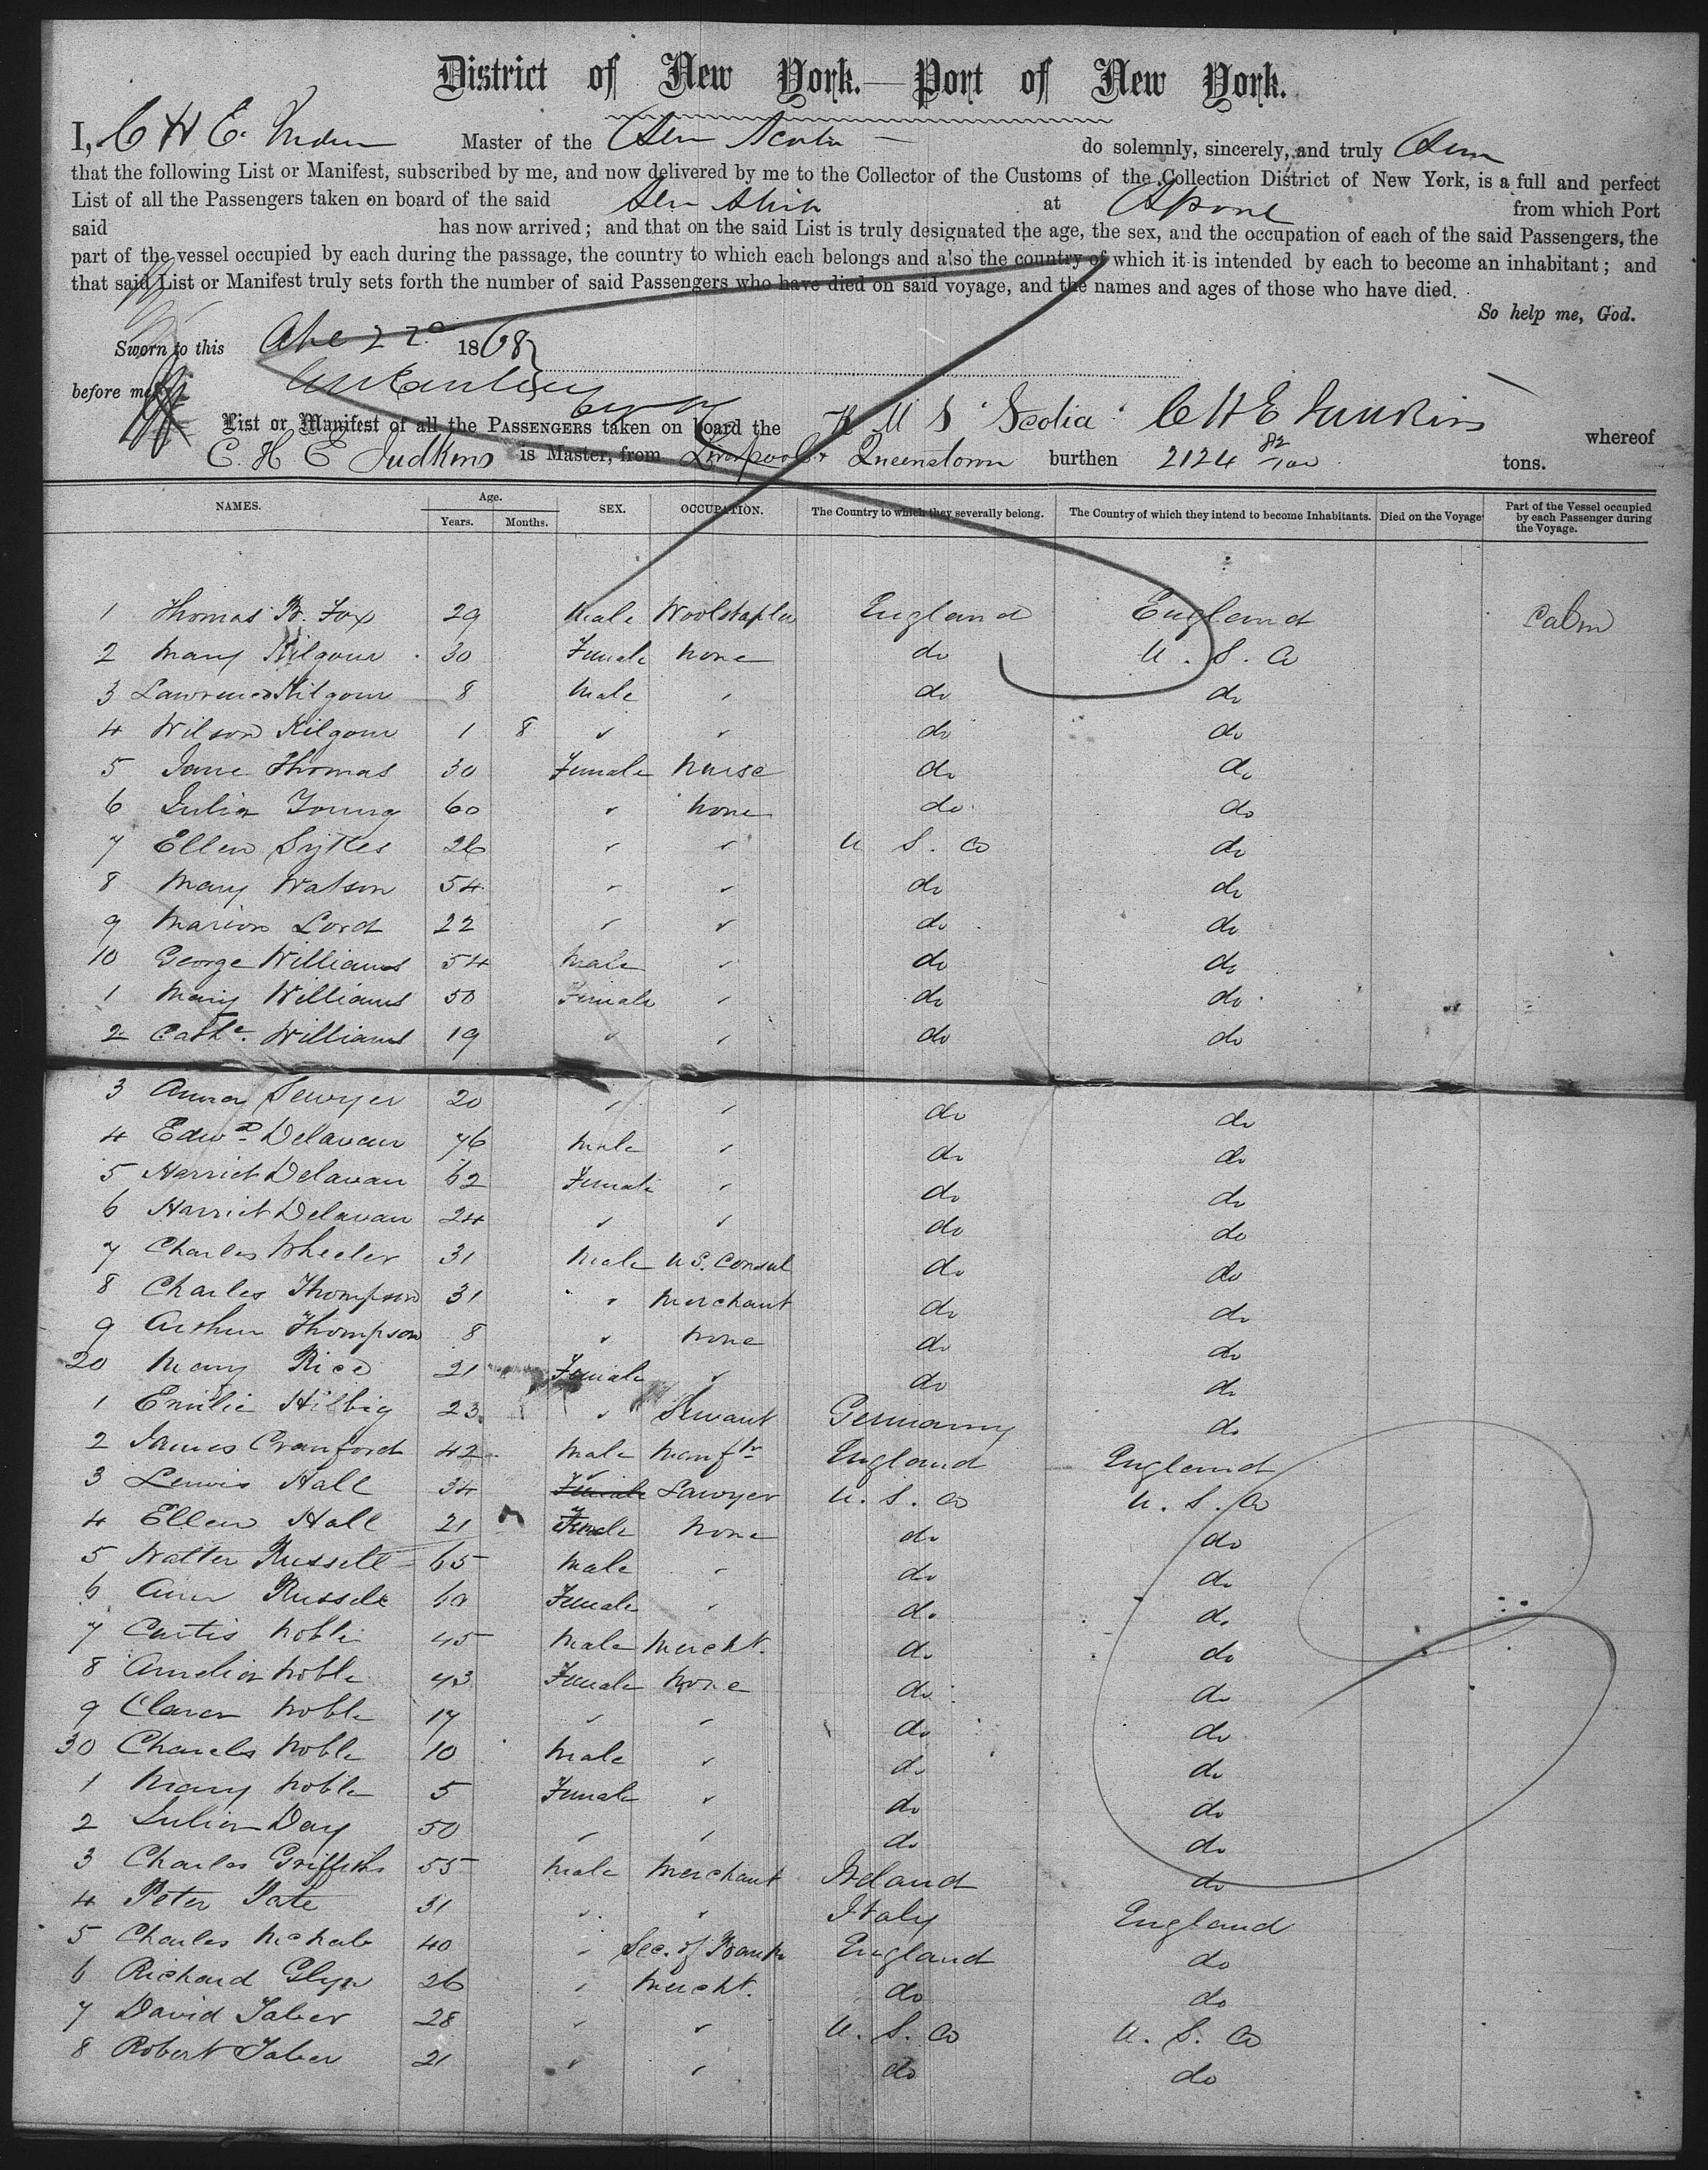 District of New York.—Port of New York.
I, C H E Judkins Master of the Str Scotia do solemnly, sincerely, and truly Swear
that the following List or Manifest, subscribed by me, and now delivered by me to the Collector of the Customs of the Collection District of New York, is a full and perfect
List of all the Passengers taken on board of the said at from which Port
said has now arrived; and that on the said List is truly designated the age, the sex, and the occupation of each of the said Passengers, the
part of the vessel occupied by each during the passage, the country to which each belongs and also the country of which it is intended by each to become an inhabitant; and
that said List or Manifest truly sets forth the number of said Passengers who have died on said voyage, and the names and ages of those who have died.
So help me, God.
Sworn to this 22d 1868
before me
List or Manifest of all the PASSENGERS taken on board the R M S "Scotia" C H E Judkins whereof
C. H E Judkins is Master, from Liverpool & Queenstown burthen 2124 82/100 tons.
NAMES. Age. Years. Months. SEX. OCCUPATION. The Country to which they severally belong. The Country of which they intend to become Inhabitants. Died on the Voyage Part of the Vessel occupied by each Passenger during the Voyage.
1 Thomas B. Fox 29 Male Woolstapler England England Cabin
2 Mary Kilgour 30 Female None do U. S. A
3 Lawrence Kilgour 8 Male " do do
4 Wilson Kilgour 1 8 " " do do
5 Jane Thomas 30 Female Nurse do do
6 Julia Young 60 " None do do
7 Ellen Sykes 26 " " U S. A do
8 Mary Watson 54 " " do do
9 Marion Lord 22 " " do do
10 George Williams 54 Male " do do
1 Mary Williams 50 Female " do do
2 Cathe. Williams 19 " " do do
3 Anna Sawyer 20 " " do do
4 Edwd. Delavan 76 Male " do do
5 Harriet Delavan 62 Female " do do
6 Harriet Delavan 24 " " do do
7 Charles Wheeler 31 Male U S. Consul do do
8 Charles Thompson 31 " Merchant do do
9 Arthur Thompson 8 " None do do
20 Mary Rice 21 Female " do do
1 Emilie Hilbig 23 " Servant Germany do
2 James Cranford 42 Male Manfr England England
3 Lewis Hall 34 " Lawyer U. S. A U. S. A
4 Ellen Hall 21 Female None do do
5 Walter Russell 65 Male " do do
6 Ann Russell 60 Female " do do
7 Curtis Noble 45 Male Mercht. do do
8 Amelia Noble 43 Female None do do
9 Clara Noble 17 " " do do
30 Charles Noble 10 Male " do do
1 Mary Noble 5 Female " do do
2 Julia Day 50 " " do do
3 Charles Griffiths 55 Male Merchant Ireland do
4 Peter Pate 31 " " Italy England
5 Charles 40 " Sec. of Bank England do
6 Richard Glyn 26 " Mercht. do do
7 David Taber 28 " " U. S. A U. S. A
8 Robert Taber 21 " " do do